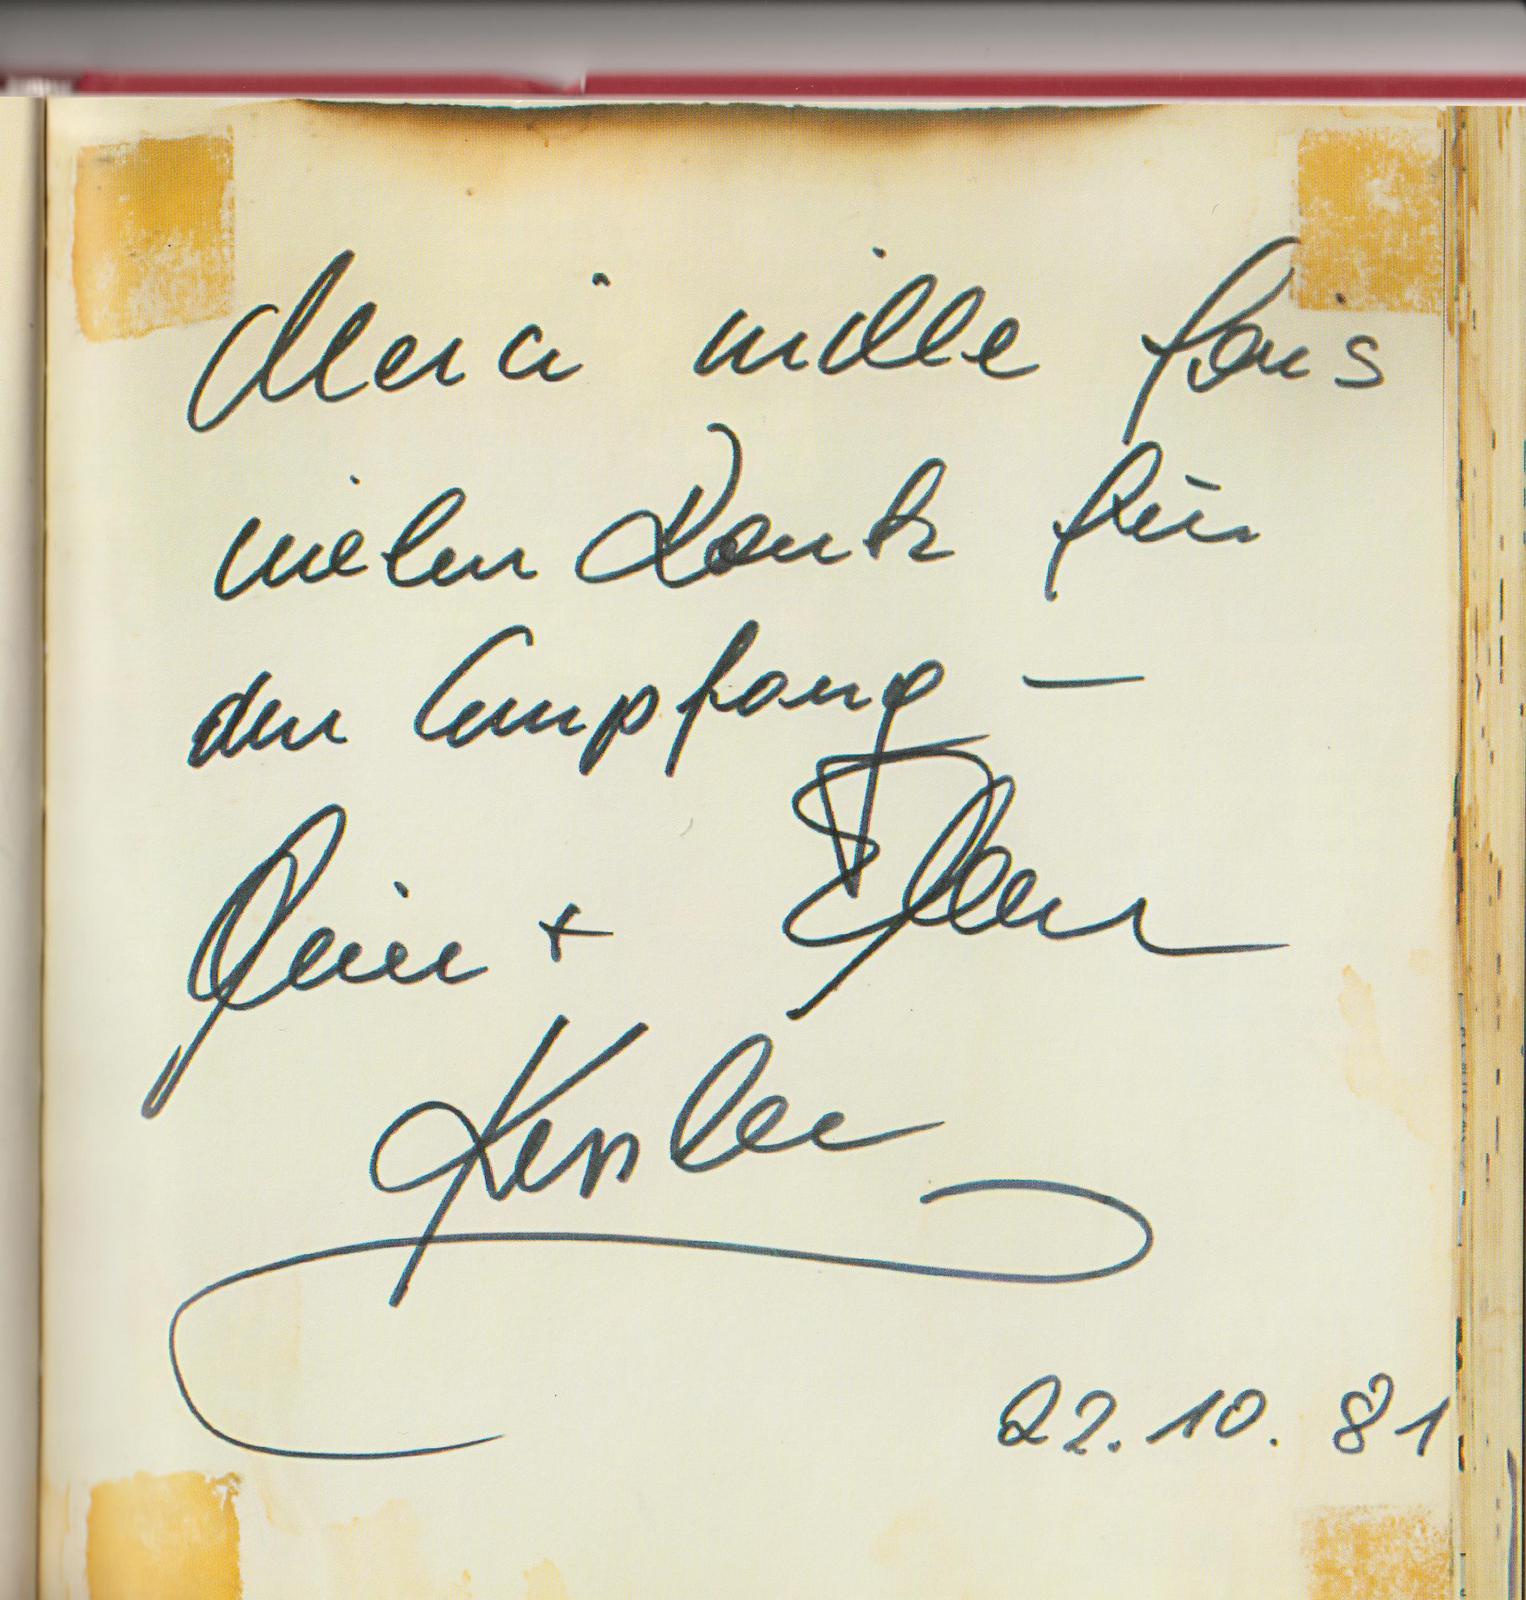 Merci mille fois
vielen Dank für
den Empfang –
+ Ellen
Kessler
22.10.81